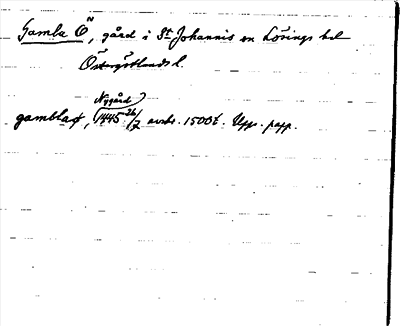 Gamla Ö, gård i St Johannis sn Lösings hd
Östergötlands l.
Nygård
gamblaø, 1445 26/7 avskr. 1500t. Upps. papp.